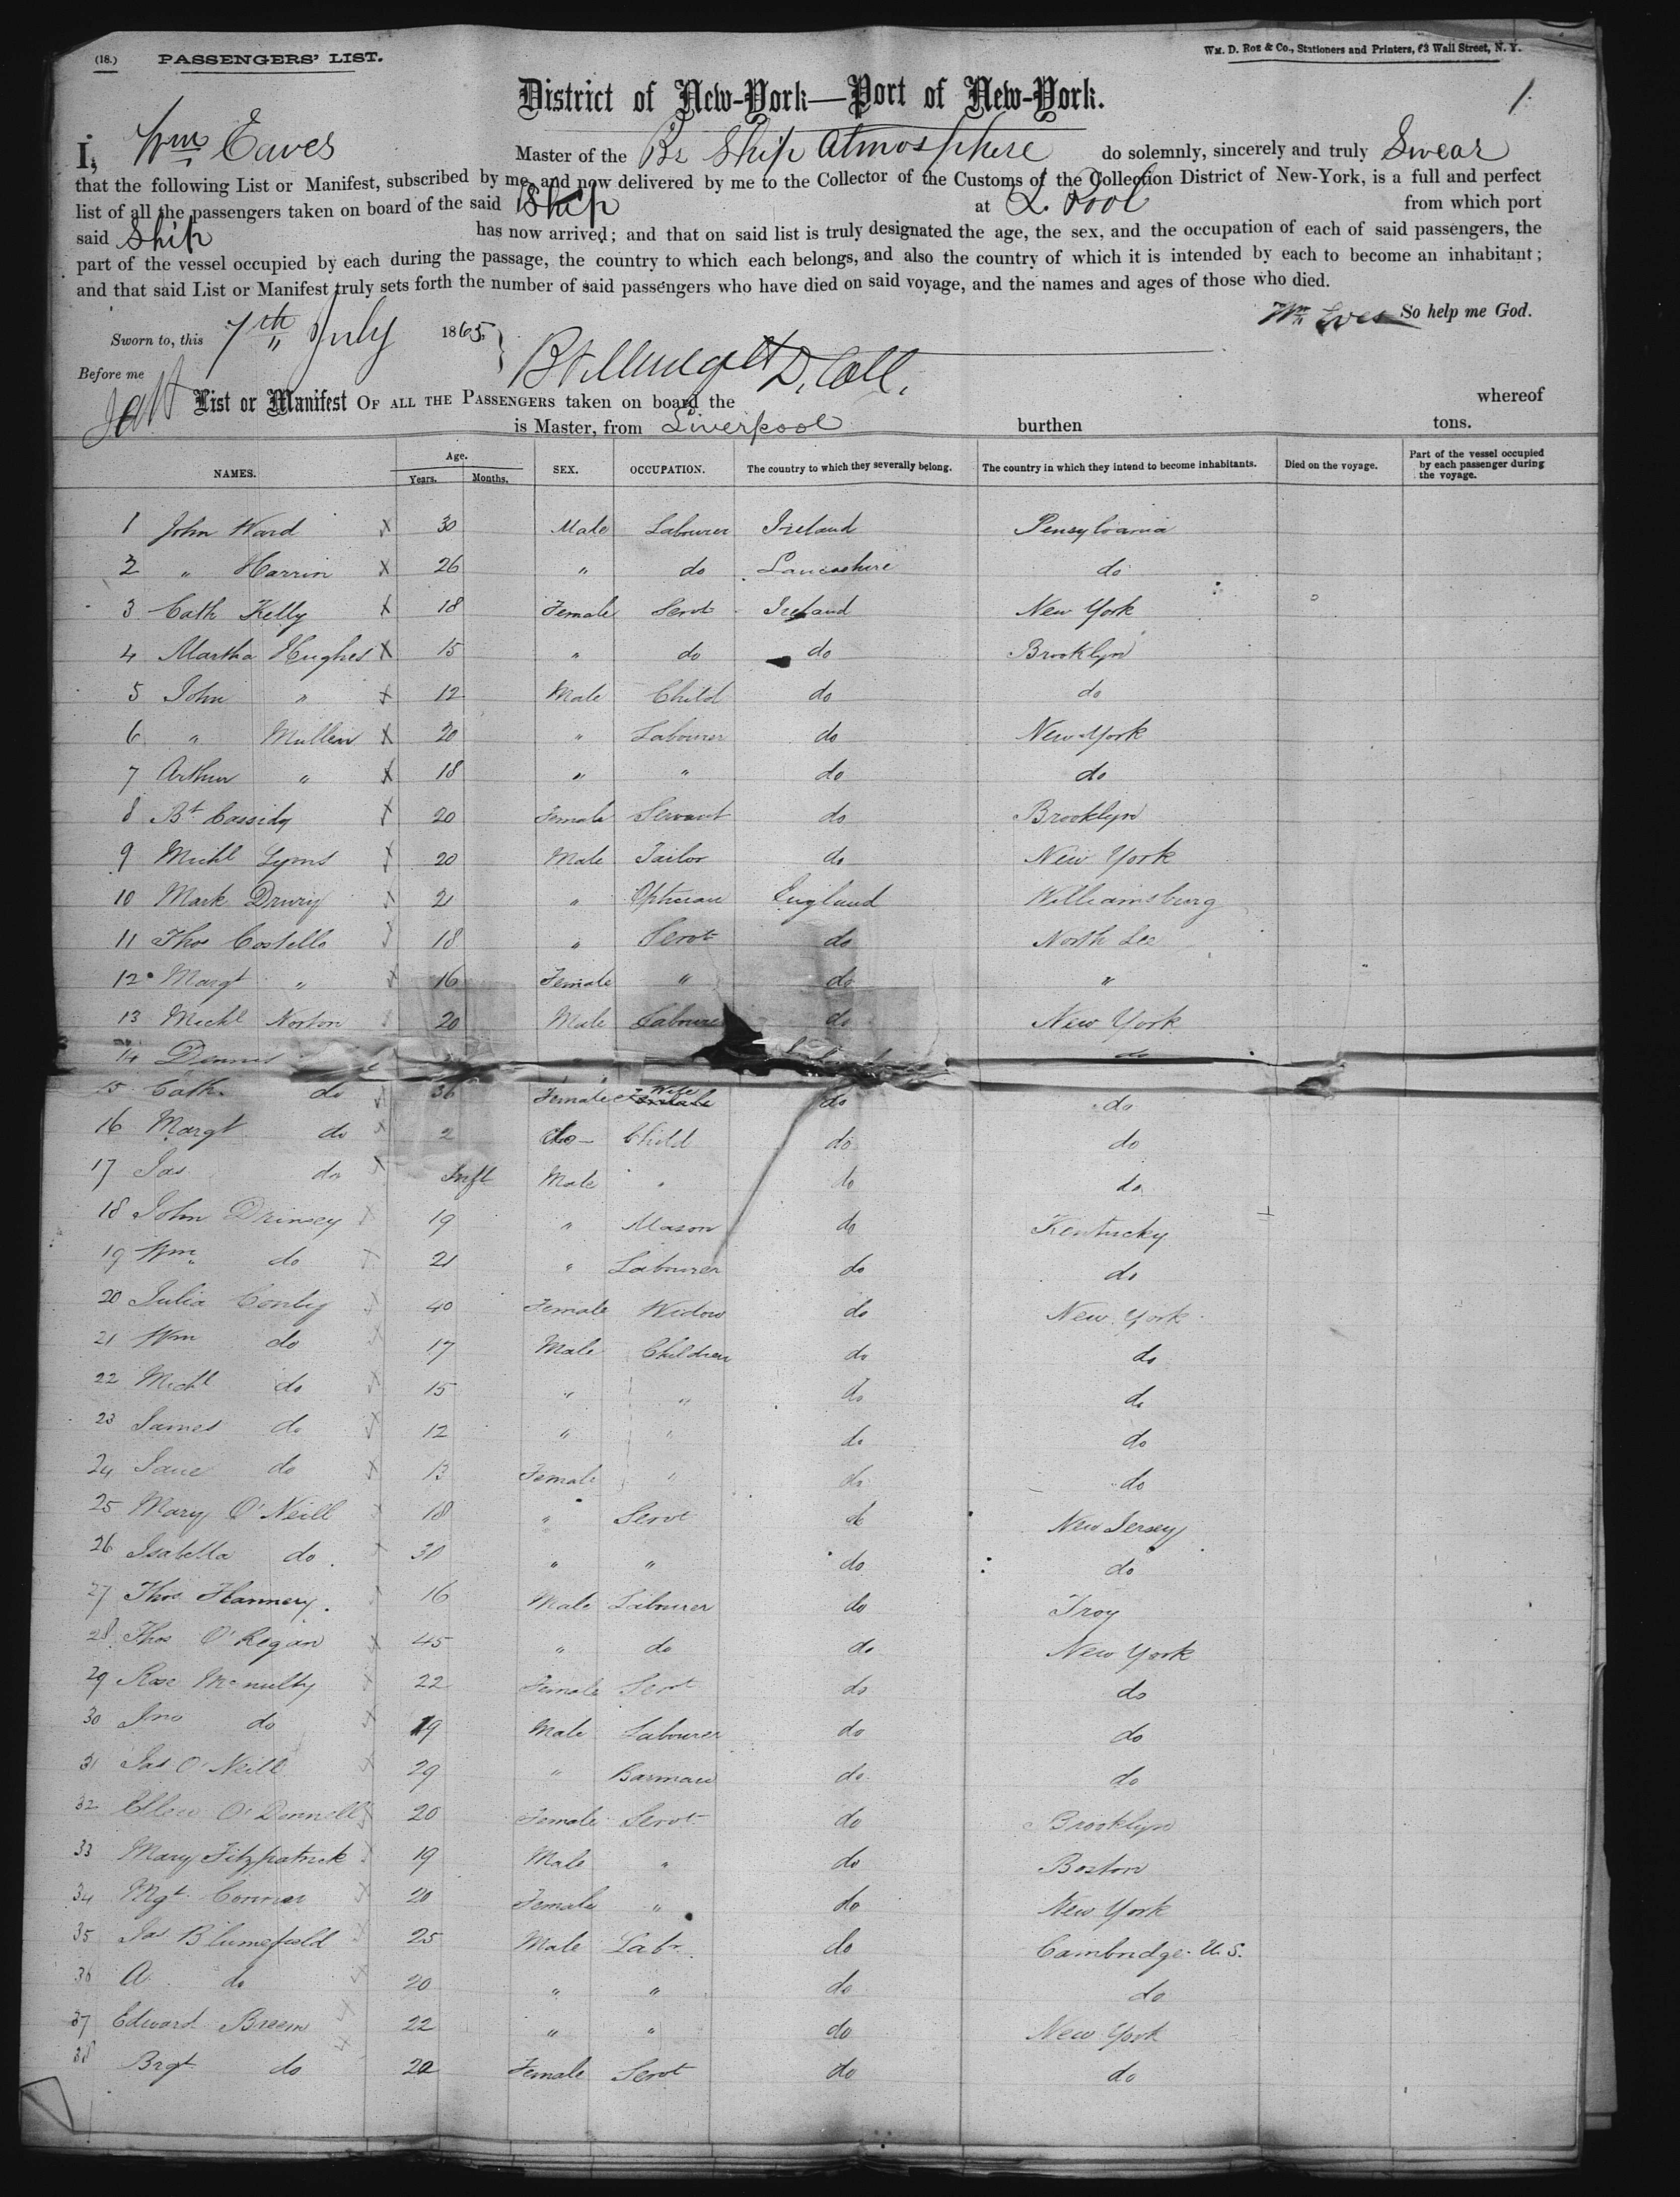 (18.) PASSENGERS' LIST.
Wm. D. Roe & Co., Stationers and Printers, 63 Wall Street, N. Y.
District of New-York—Port of New-York.
1.
I, Wm Eaves Master of the Br Ship Atmosphere do solemnly, sincerely and truly Swear
that the following List or Manifest, subscribed by me, and now delivered by me to the Collector of the Customs of the Collection District of New-York, is a full and perfect
list of all the passengers taken on board of the said Ship at L. Pool from which port
said Ship has now arrived; and that on said list is truly designated the age, the sex, and the occupation of each of said passengers, the
part of the vessel occupied by each during the passage, the country to which each belongs, and also the country of which it is intended by each to become an inhabitant;
and that said List or Manifest truly sets forth the number of said passengers who have died on said voyage, and the names and ages of those who died.
So help me God.
Sworn to, this 7th July 1865
Before me D. Coll.
List or Manifest OF ALL THE PASSENGERS taken on board the whereof
is Master, from Liverpool burthen tons.
NAMES. Age. Years. Months. SEX. OCCUPATION. The country to which they severally belong. The country in which they intend to become inhabitants. Died on the voyage. Part of the vessel occupied by each passenger during the voyage.
1 John Ward X 30 Male Labourer Ireland Pensylvania
2 " Harrin X 26 " do Lancashire do
3 Cath Kelly X 18 Female Servt Ireland New York
4 Martha Hughes X 15 " do do Brooklyn
5 John " X 12 Male Child do do
6 " Mullen X 20 " Labourer do New York
7 Arthur " X 18 " " do do
8 Bt Cassidy X 20 Female Servant do Brooklyn
9 Michl Lyons X 20 Male Tailor do New York
10 Mark Drury X 21 " Optician England Williamsburg
11 Thos Costello X 18 " Servt do North Lee
12 Margt " X 16 Female " do "
13 Michl Norton X 20 Male Labourer do New York
14 Dennis do
15 Cath do X 36 Female Wife do do
16 Margt do X 2 do Child do do
17 Jas do X Inft Male " do do
18 John Drinsey X 19 " Mason do Kentucky
19 Wm do X 21 " Labourer do do
20 Julia Conby X 40 Female Widow do New York
21 Wm do X 17 Male Children do do
22 Michl do X 15 " " do do
23 James do X 12 " " do do
24 Jane do X 13 Female " do do
25 Mary O'Neill X 18 " Servt do New Jersey
26 Isabella do X 30 " " do do
27 Thos Flannery X 16 Male Labourer do Troy
28 Thos O'Regan X 45 " do do New York
29 Rose McNulty X 22 Female Servt do do
30 Jno do X 19 Male Labourer do do
31 Jas O'Neill X 29 " Barman do do
32 Ellen O'Donnell X 20 Female Servt do Brooklyn
33 Mary Fitzpatrick X 19 Male " do Boston
34 Mgt Connor X 20 Female " do New York
35 Jas Blumefield X 25 Male Labr do Cambridge U.S.
36 A do X 20 " " do do
37 Edward Breem X 22 " " do New York
38 Brgt do X 20 Female Servt do do